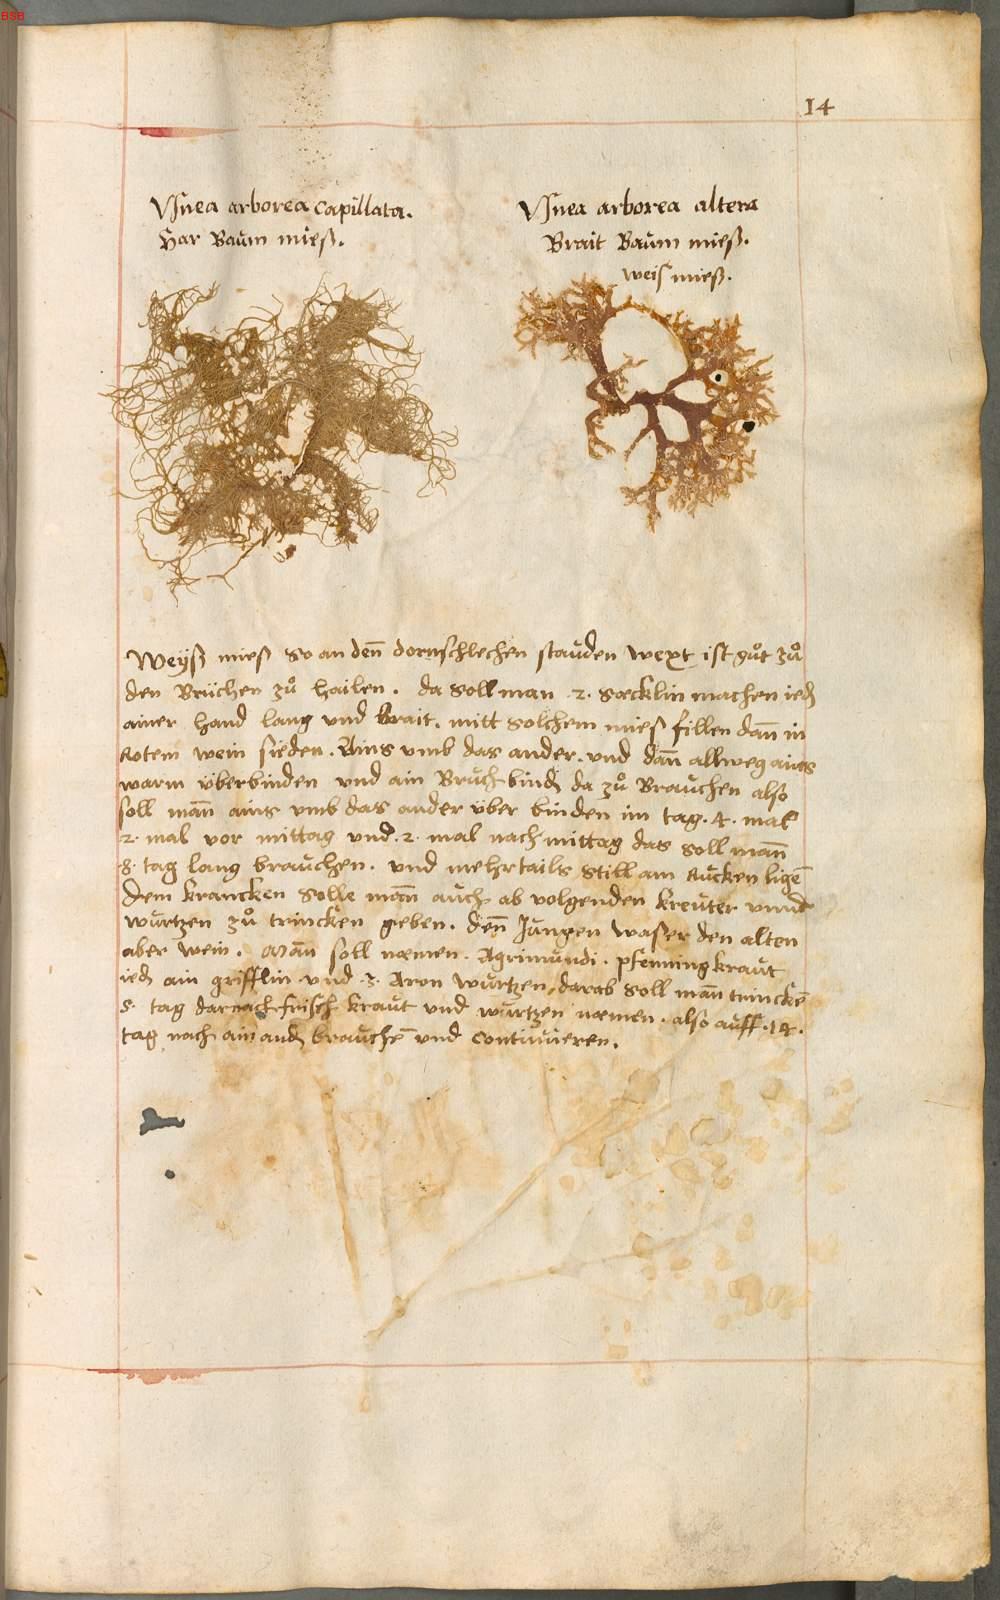 BSB
14
Vsnea arborea capillata.
Har Baum mieß.
Vsnea arborea altera
Brait Baum mieß.
weiß mieß.
Weÿß mieß so an den̄ dornschlechen stauden wext ist gůt zů
den Brüchen zů hailen. da soll man .2. sæcklin machen ied
ainer hand lang vnd brait. mitt solchem mieß fillen dan̄ in
Rotem wein sieden. Ains vmb das ander. vnd dan̄ allweg ains
warm überbinden vnd ain Bruch bind da zů Brauchen also
soll man̄ ains vmb das ander über binden im tag .4. mal
2. mal vor mittag vnd .2. mal nach mittag das soll man̄
8. tag lang brauchen. vnd mehrtails still am Rucken ligē
dem krancken solle man̄ auch ab volgenden kreuter vnnd
wurtzen zů trincken geben. den̄ Jungen waser den alten
aber wein. Man̄ soll næmen. Agrimundi. pfenning kraut
ied ain grifflin vnd .3. Aron wurtzen, darab soll man̄ trinckē
5. tag darnach frisch kraut vnd wurtzen næmen. also auff .14.
tag nach ain and brauchē vnd continuieren.